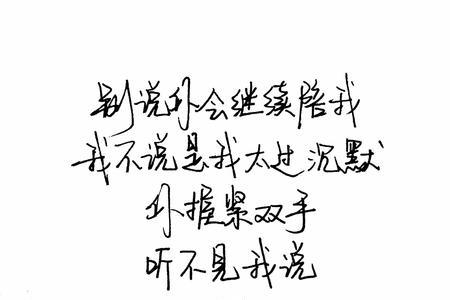 别说你会继续陪我
我不说是我太过沉默
你握紧双手
听不见我说